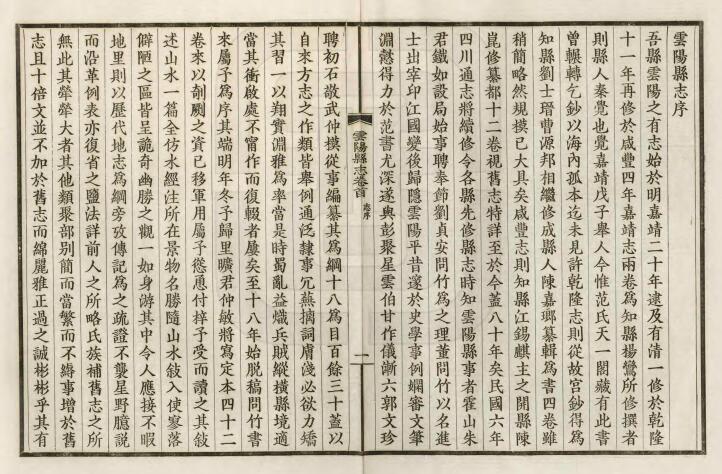 雲陽縣志序
吾縣雲陽之有志始於明嘉靖二十年逮及有清一修於乾隆
十一年再修於咸豐四年嘉靖志兩卷為知縣楊鸞所修撰者
則縣人秦覺也覺嘉靖戊子舉人今惟范氏天一閣藏有此書
曾輾轉乞鈔以海內孤本迄未見許乾隆志則從故宮鈔得為
知縣劉士瑨曹源邦相繼修成縣人陳嘉瑯纂輯為書四卷雖
稍簡略然規模已大具矣咸豐志則知縣江錫麒主之開縣陳
崑修纂都十二卷視舊志特詳至於今蓋八十年矣民國六年
四川通志將續修令各縣先修縣志時知雲陽縣事者霍山朱
君鐵如設局始事聘奉節劉貞安問竹為之理董問竹以名進
士出宰卬江國變後歸隱雲陽平昔邃於史學事例嫻審文筆
淵懿得力於范書尤深遂與彭聚星雲伯甘作儀漸六郭文珍
雲陽縣志卷首
志序
一
聘初石敬武仲撲從事編纂其為綱十八為目百餘三十蓋以
自來方志之作類皆舉例通泛隷事冗蕪摛詞膚淺必欲力矯
其習一以翔實淵雅為率當是時蜀亂益熾兵賊縱橫縣境適
當其衝啟處不甯作而復輟者屢矣至十八年始脫稿問竹書
來屬予為序其端明年冬予歸里曠君仲敏將寫定本四十二
卷來以剞劂之資已移軍用屬予慫恿付梓予受而讀之其敍
述山水一篇全仿水經注所在景物名勝隨山水敍入使寥落
僻陋之區皆呈詭奇幽勝之觀一如身游其中令人應接不暇
地里則以歷代地志為綱旁攷傳記為之疏證不襲星野臆說
而沿革例表亦復省之鹽法詳前人之所略氏族補舊志之所
無此其犖犖大者其他類聚部別簡而當繁而不縟事增於舊
志且十倍文並不加於舊志而綿麗雅正過之誠彬彬乎其有